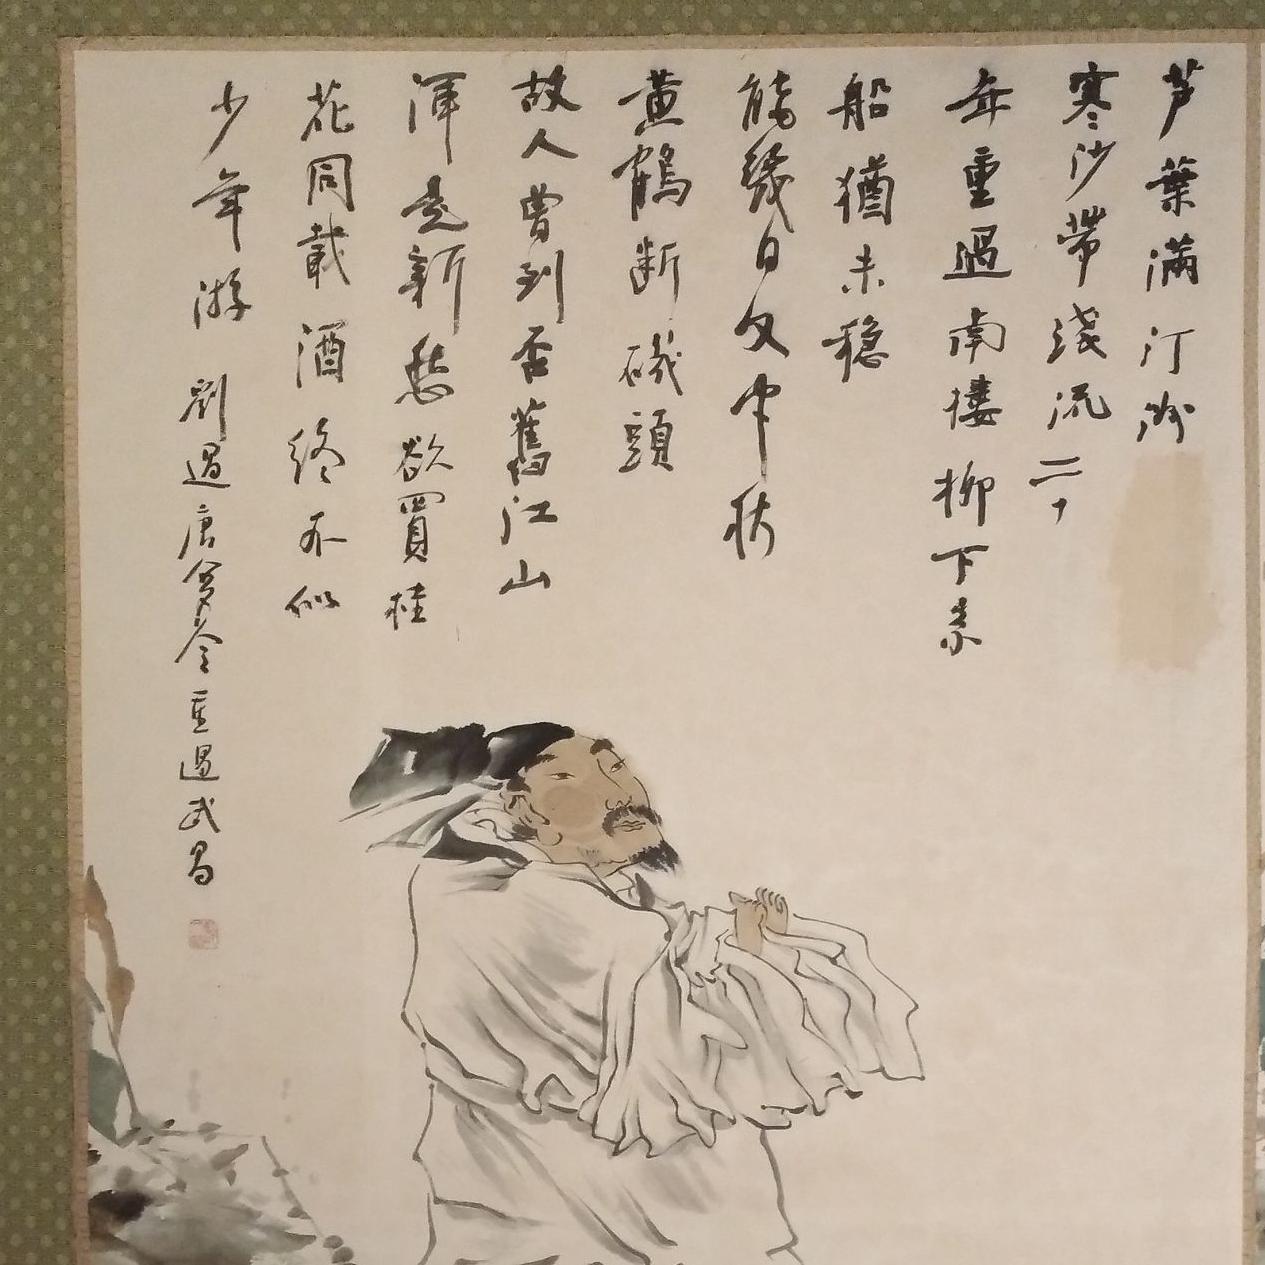 芦葉滿汀洲
寒沙帶淺流二十
年重過南樓柳下系
船猶未穩
能幾日又中秋
黄鶴断磯頭
故人曾到否舊江山
渾是新愁欲買桂
花同載酒終不似
少年游 劉過唐多令重過武昌